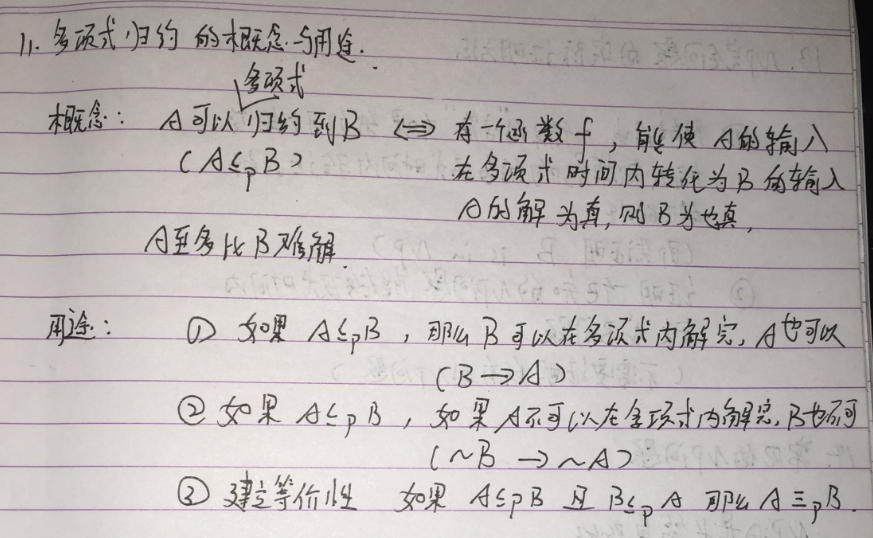 11. 多项式归约的概念与用途.
多项式
概念: A可以归约到B ⟺ 有一个函数f, 能使A的输入
(A≤pB) 在多项式时间内转化为B的输入
A的解为真, 则B为也真,
A至多比B难解.
用途: ① 如果 A≤pB, 那么B可以在多项式内解完, A也可以
(B→A)
② 如果 A≤pB, 如果A不可以在多项式内解完, B也不可
(~B → ~A)
③ 建立等价性 如果 A≤pB 且 B≤pA 那么 A≡pB.